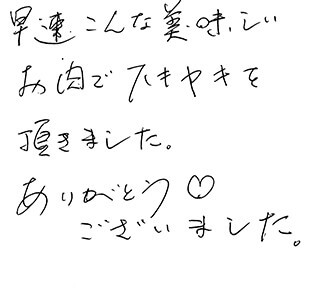 早速こんな美味しい
お肉でスキヤキを
頂きました。
ありがとう♡
ございました。